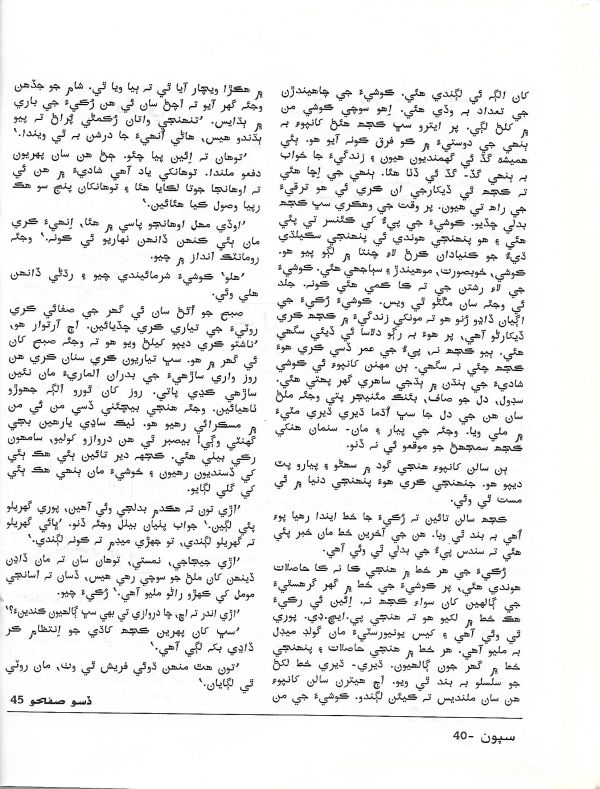 کان الڳ ئي لڳندي هئي. ڪوشيءَ جي چاهيندڙن
جي تعداد بہ وڏي هئي. اِهو سوچي ڪوشي من
۾ کلڻ لڳي. پر ايترو سڀ ڪجھ هئڻ کانپوءِ بہ
ٻنهي جي دوستيءَ ۾ ڪو فرق ڪونہ آيو هو. ٻئي
هميشہ گڏ ئي گھمنديون هيون ۽ زندگيءَ جا خواب
بہ ٻنهي گڏ- گڏ ئي ڏٺا هئا. ٻنهي جي اِڇا هئي
تہ ڪجھ ئي ڏيکارجي ان ڪري ئي هو ترقيءَ
جي راھ تي هيون. پر وقت جي وهڪري سڀ ڪجھ
بدلي ڇڏيو. ڪوشيءَ جي پيءُ کي ڪئنسر ٿي پئي
هئي ۽ هو پنهنجي هوندي ئي پنهنجي سڪيلڌي
ڌيءُ جو ڪنيادان ڪرڻ لاءِ چنتا ۾ لڳو پيو هو.
ڪوشي، خوبصورت، موهيندڙ ۽ سٻاجھي هئي. ڪوشيءَ
جي لاءِ رشتن جي تہ ڪا ڪمي هئي ڪونہ. جلد
ئي وجئہ سان مڱڻو ٿي ويس. ڪوشيءَ رُڪيءَ جي
اڳيان ڏاڍو رُنو هو تہ مونکي زندگيءَ ۾ ڪجھ ڪري
ڏيکارڻو آهي، پر هوءَ بہ رڳو دلاسا ئي ڏيئي سگھي
هئي. ٻيو ڪجھ نہ. پيءُ جي عمر ڏسي ڪري هوءَ
ڪجھ چئي نہ سگھي. ٻن مهنن کانپوءِ ئي ڪوشي
شاديءَ جي ٻنڌن ۾ ٻڌجي ساهري گھر پهتي هئي.
سڊول، دل جو صاف، بئنڪ مئنيجر پتي وجئہ ملڻ
سان هن جي دل جا سڀ اڌما ڏيري ڏيري مٽيءَ
۾ ملي ويا. وجئہ جي پيار ۽ مان- سنمان هنکي
ڪجھ سمجھڻ جو موقعو ئي نہ ڏنو.
ٻن سالن کانپوءِ هنجي گود ۾ سهڻو ۽ پيارو پٽ
ديپو هو. جنهنجي ڪري هوءَ پنهنجي دنيا ۾ ئي
مست ٿي وئي.
ڪجھ سالن تائين تہ رُڪيءَ جا خط ايندا رهيا پوءِ
اُهي بہ بند ٿي ويا. هن جي آخرين خط مان خبر پئي
هئي تہ سندس پيءُ جي بدلي ٿي وئي آهي.
رُڪيءَ جي هر خط ۾ هنجي ڪا نہ ڪا حاصلات
هوندي هئي، پر ڪوشيءَ جي خط ۾ گھر گرهستيءَ
جي ڳالهين کان سواءِ ڪجھ نہ. اِئين ئي رڪيءَ
هڪ خط ۾ لکيو هو تہ هنجي پي.ايڇ.ڊي. پوري
ٿي وئي آهي ۽ کيس يونيورسٽيءَ مان گولڊ ميڊل
بہ مليو آهي. هر خط ۾ هنجي حاصلات ۽ پنهنجي
خط ۾ گھر جون ڳالهيون. ڏيري- ڏيري خط لکڻ
جو سلسلو بہ بند ٿي ويو. اڄ هيترن سالن کانپوءِ
هن سان ملنديس تہ ڪيئن لڳندو. ڪوشيءَ جي من
۾ هڪڙا ويچار آيا ٿي تہ ٻيا ويا ٿي. شام جو جڏهن
وجئہ گھر آيو تہ اچڻ سان ئي هن رُڪيءَ جي باري
۾ ٻڌايس. 'تنهنجي واتان رُڪمڻي پُراڻ تہ پيو
ٻڌندو هيس، هاڻي اُنهيءَ جا درشن بہ ٿي ويندا.'
'توهان تہ اِئين پيا چئو. ڄڻ هن سان پهريون
دفعو ملندا. توهانکي ياد آهي شاديءَ ۾ هن ئي
تہ اوهانجا جوتا لڪايا هئا ۽ توهانکان پنج سو هڪ
رپيا وصول ڪيا هئائين.'
'اوڏي مهل اوهانجو پاسي ۾ هئا، اِنهيءَ ڪري
مان ٻئي ڪنهن ڏانهن نهاريو ئي ڪونہ.' وجئہ
رومانٽڪ انداز ۾ چيو.
'هلو' ڪوشيءَ شرمائيندي چيو ۽ رڌڻي ڏانهن
هلي وئي.
صبح جو اُٿڻ سان ئي گھر جي صفائي ڪري
روٽيءَ جي تياري ڪري ڇڏيائين. اڄ آرتوار هو،
'ناشتو ڪري ديپو کيلڻ ويو هو تہ وجئہ صبح کان
ئي گھر ۾ هو. سڀ تياريون ڪري سنان ڪري هن
روز واري ساڙهيءَ جي بدران الماريءَ مان نئين
ساڙهي ڪڍي پاتي. روز کان ٿورو الڳ جھوڙو
ٺاهيائين. وجئہ هنجي بيچئني ڏسي من ئي من
۾ مسڪرائي رهيو هو. ٺيڪ ساڍي يارهين بجي
گھنٽي وڳي! بيصبر ٿي هن دروازو کوليو، سامهون
رڪي بيٺي هئي. ڪجھ دير تائين ٻئي هڪ ٻئي
کي ڏسنديون رهيون ۽ خوشيءَ مان ٻنهي هڪ ٻئي
کي ڳلي لڳايو.
'اڙي تون تہ هڪدم بدلجي وئي آهين، پوري گھريلو
پئي لڳين.' جواب پليان بيٺل وجئہ ڏنو. 'ڀاڻي گھريلو
تہ گھريلو لڳندي، تو جھڙي ميڊم تہ ڪونہ لڳندي.'
'اڙي جيجاجي، نمستي، توهان سان تہ مان ڏاڍن
ڏينهن کان ملڻ جو سوچي رهي هيس، ڏسان تہ اسانجي
مومل کي ڪهڙو راڻو مليو آهي.' رُڪيءَ چيو.
'اڙي اندر تہ اچ، ڇا دروازي تي بهي سڀ ڳالهيون ڪندينءَ؟'
'سڀ کان پهرين ڪجھ کاڌي جو اِنتظام ڪر
ڏاڍي بک لڳي آهي.'
'تون هٿ منهن ڌوئي فريش ٿي وٺ، مان روٽي
ٿي لڳايان.'
ڏسو صفحو 45
سپون -40